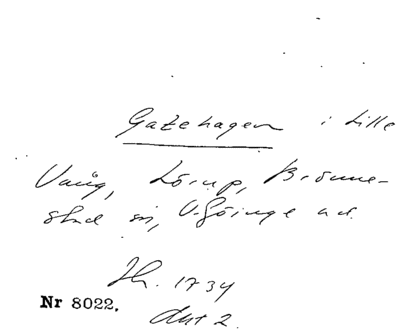 Gatehagen i Lille
Vång, Lörup, Brönne-
stad sn, V. Göinge hd.
Jb. 1734
Nr 8022.
Akt 2.